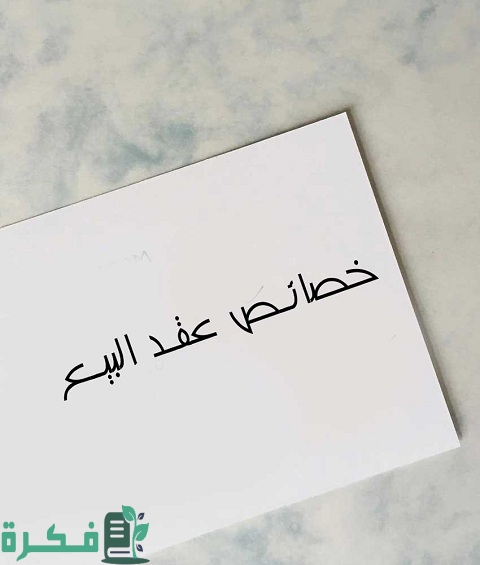 خصائص عقد البيع
فكرة